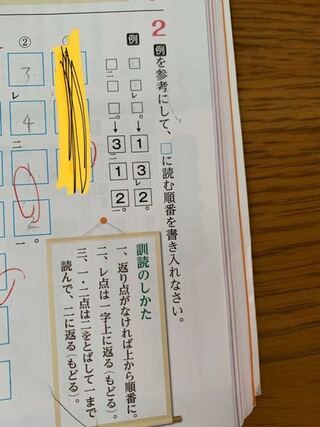 2 例を参考にして、□に読む順番を書き入れなさい。
例 □□レ□。→1 3レ 2。
□二□□一。→3二 1 2一。
訓読のしかた
一、返り点がなければ上から順番に。
二、レ点は一字上に返る(もどる)。
三、一・二点は二をとばして一まで
読んで、二に返る(もどる)。
② 3レ 4二 一。